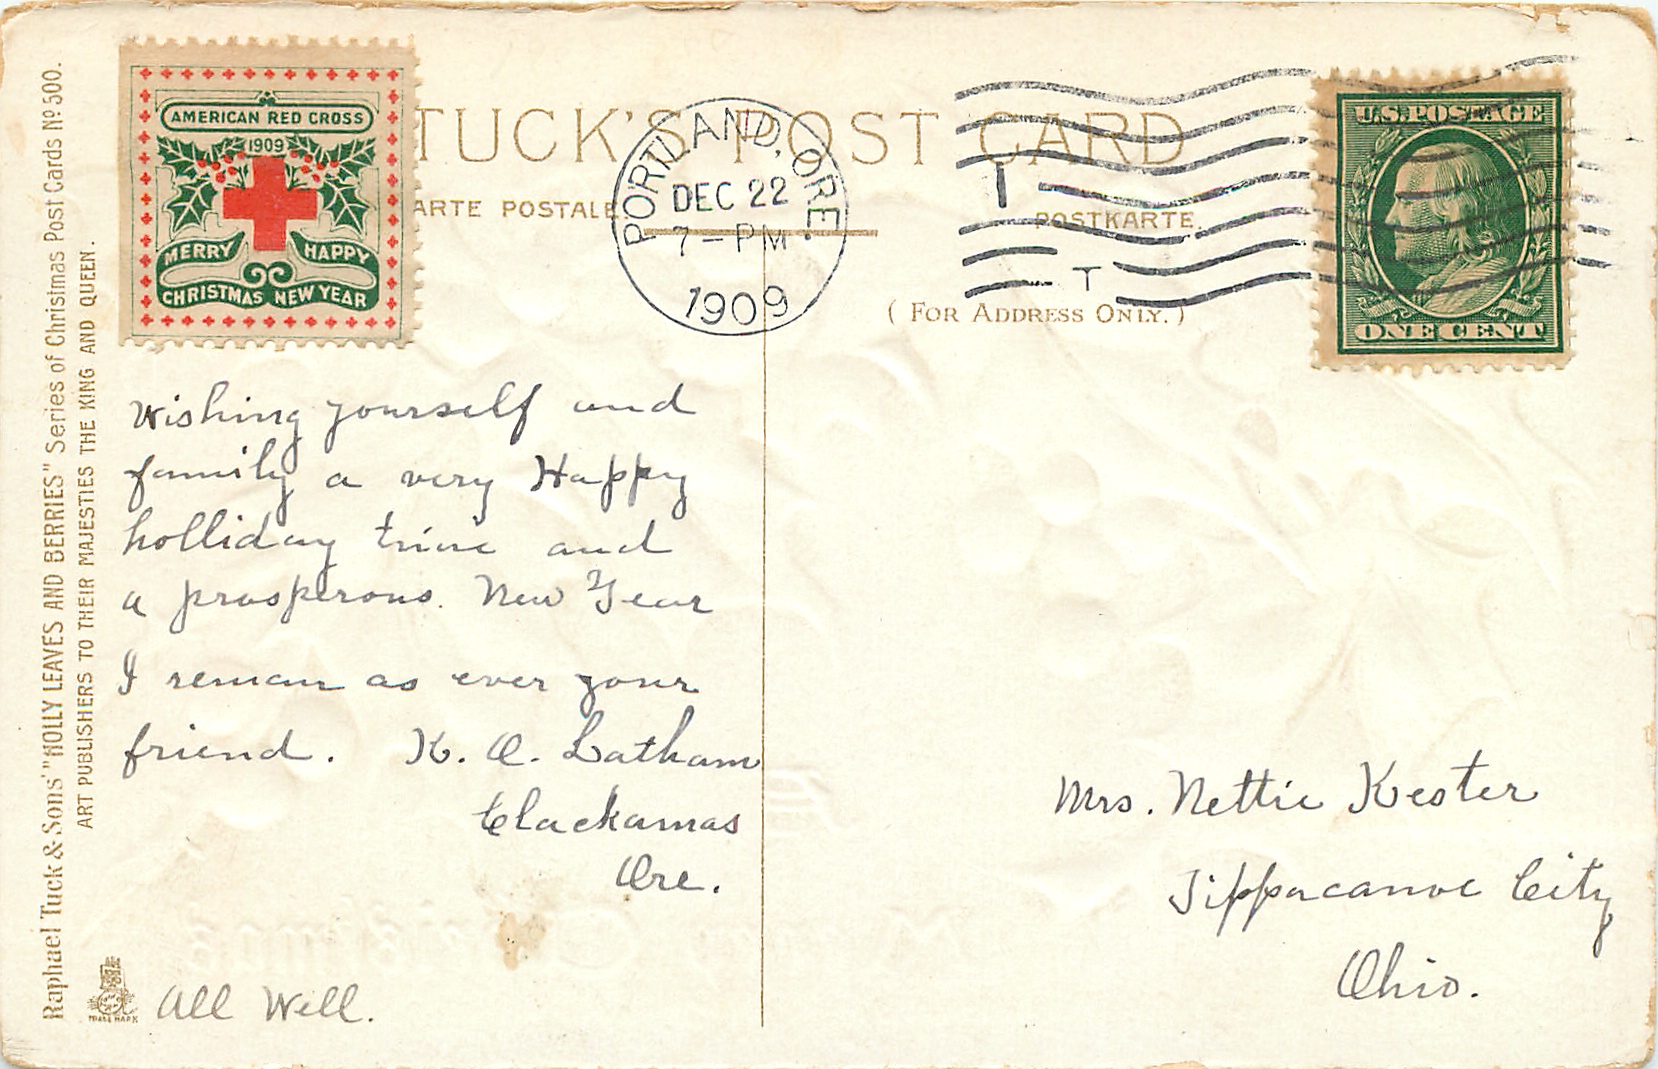 Raphael Tuck & Sons' "HOLLY LEAVES AND BERRIES" Series of Christmas Post Cards No 500.
ART PUBLISHERS TO THEIR MAJESTIES THE KING AND QUEEN.
TRADE MARK
AMERICAN RED CROSS
1909
MERRY HAPPY
CHRISTMAS NEW YEAR
TUCK'S POST CARD
ARTE POSTALE
POSTKARTE.
(FOR ADDRESS ONLY.)
PORTLAND, ORE.
DEC 22
7-PM
1909
T
U.S. POSTAGE
ONE CENT
Wishing yourself and
family a very Happy
holliday time and
a prosperous. New Year
I remain as ever your
friend. K. O. Latham
Clackamas
Ore.
All Well.
Mrs. Nettie Kester
Tippacanoe City
Ohio.
Merry Christmas